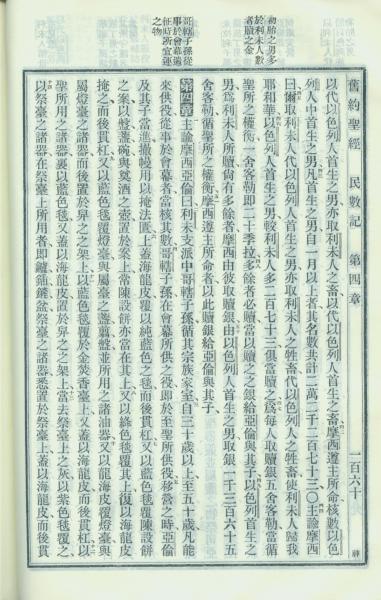 舊約聖經 民數記 第四章 一百六十
以代以色列人首生之男亦取利未人之畜以代以色列人首生之畜摩西遵主所命核數以色
列人中首生之男凡首生之男自一月以上者其名數共計二萬二千二百七十三〇主諭摩西
曰爾取利未人代以色列人首生之男亦取利未人之牲畜代以色列人之牲畜使利未人歸我
耶和華以色列人首生之男較利未人多二百七十三俱當贖之爲每人取贖銀五舍客勒當循
聖所之權衡一舍客勒即二十季拉多餘者必贖當以贖之之銀給亞倫與其子以色列首生之
男爲利未人所贖尚有多餘者摩西由彼取贖銀由以色列人首生之男取銀一千三百六十五
舍客勒循聖所之權衡摩西遵主所命者以此贖銀給亞倫與其子
第四章主諭摩西亞倫曰利未支派中哥轄子孫循其宗族家室自三十歲以上至五十歲凡能
來供役從事於會幕者當核其數哥轄子孫在會幕所供之役即於至聖所供役移營之時亞倫
及其子當進撤幔用以掩法匱上蓋海龍皮覆以純藍色之毯而後貫杠又以藍色毯覆陳設餅
之案以燈盞碗與奠酒之壺置於案上常陳設餅亦當在其上又以絳色毯覆其上復以海龍皮
掩之而後貫杠又以藍色毯覆燈臺與屬臺之燈剪盤並所用之諸油器又以龍皮覆燈臺與
屬燈臺之諸器而後置於舁之之架上以藍色毯覆於金焚香臺上又蓋以海龍皮而後貫杠以
聖所用之諸器裹以藍色毯又蓋以海龍皮置於舁之之架上當去祭臺上之灰以紫色毯覆之
以祭臺之諸器在祭臺上所用者即鑪鍤鋪盆祭臺之諸器悉置於祭臺上蓋以海龍皮而後貫
勒胎之男多
於利未人數
者贖之金
哥轄子孫從
事於會幕遷
徙時所宜運
之物